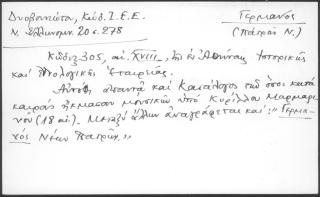 Δυοβουνιώτου, Κώδ. Ι.Ε.Ε.
Ν. Ἑλληνομν. 20 σ. 278
Γερμανὸς
(Πατρῶν Ν.)
Κῶδιξ 305, αἰ. XVIII, τῆς ἐν Ἀθήναις Ἱστορικῆς
καὶ Ἐθνολογικῆς Ἑταιρείας.
Αὐτόθι ἀπαντᾷ καὶ Κατάλογος τῶν ὅσοι κατὰ
καιροὺς ἤκμασαν μουσικῶν ὑπὸ Κυρίλλου Μαρμαρη-
νοῦ (18 αἰ.). Μεταξὺ ἄλλων ἀναγράφεται καί: "Γερμα-
νὸς Νέων Πατρῶν."